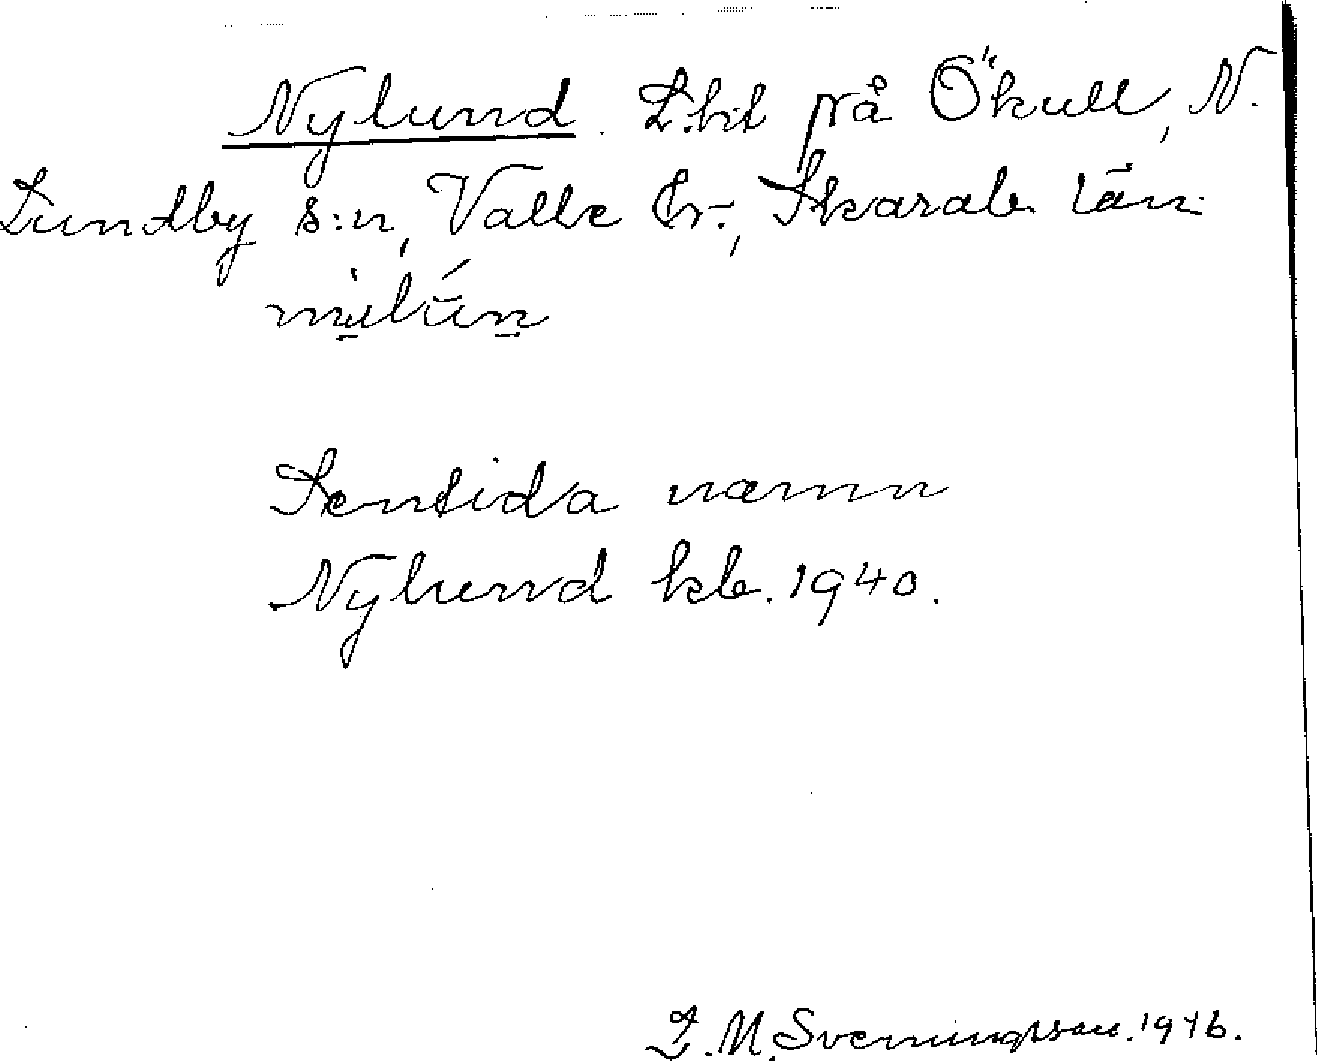 Nylund. Lht på Ökull, N.
Lundby s:n, Valle hr., Skarab. län
Sentida namn
Nylund kb. 1940.
M. Sverningsson. 1946.